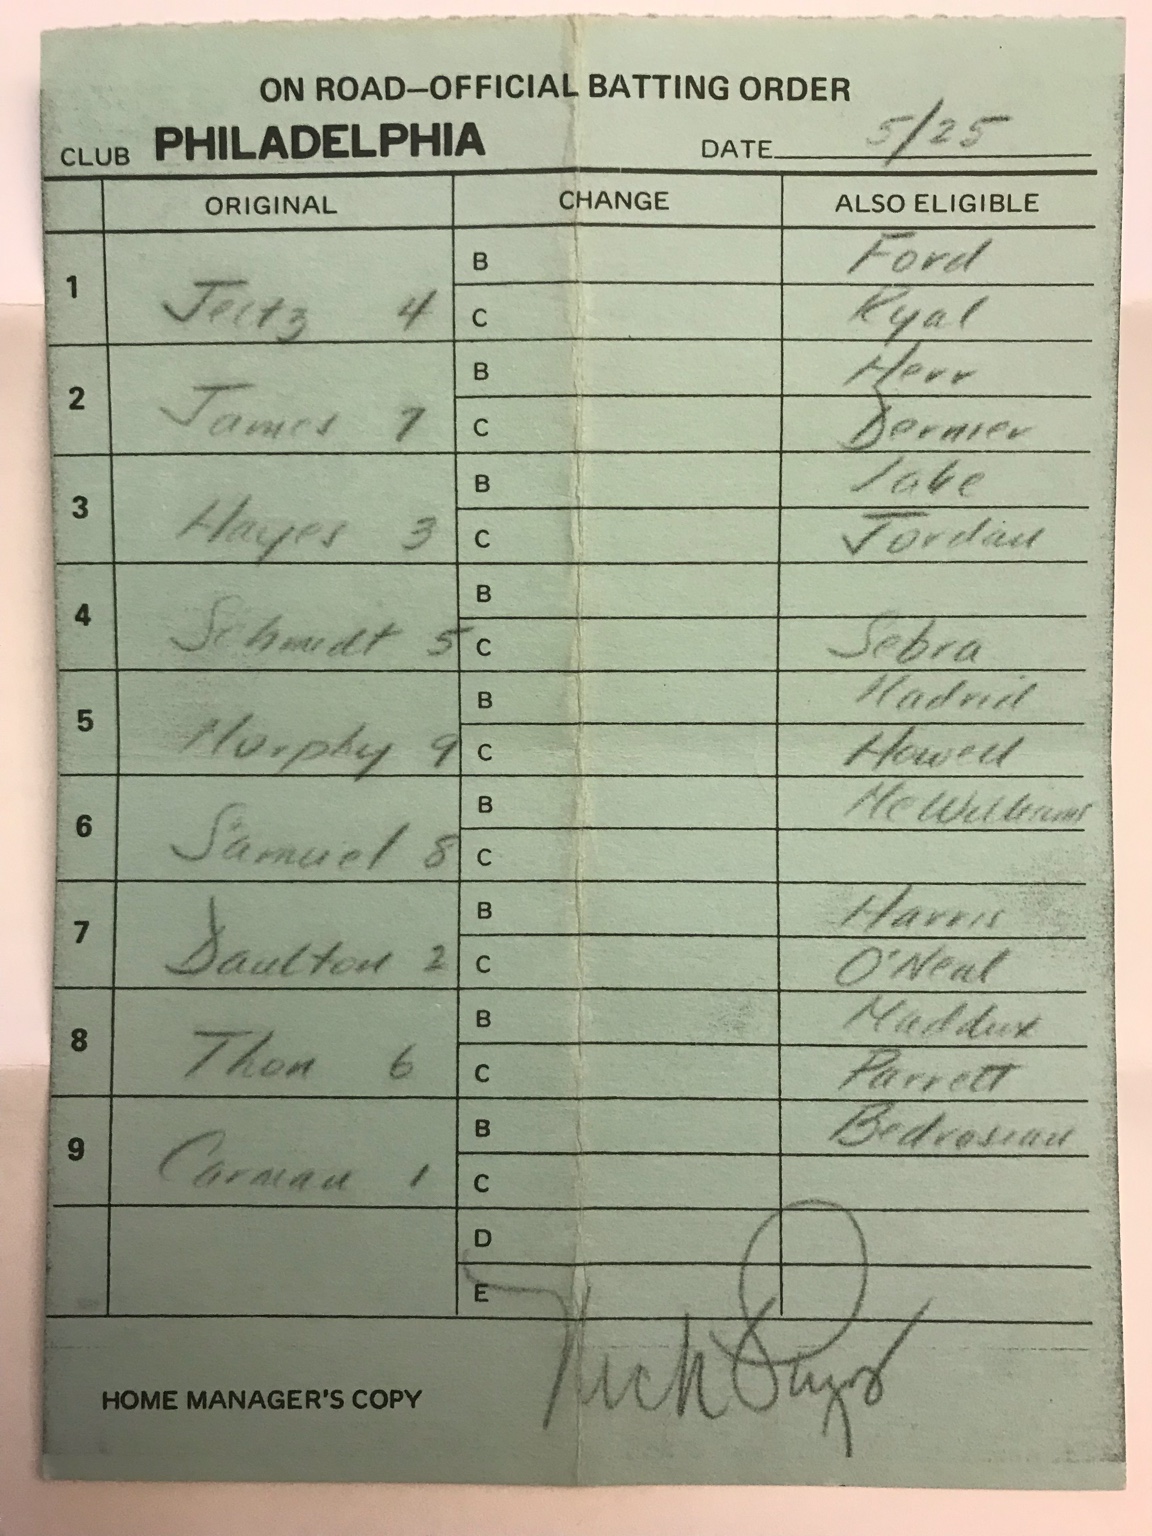 ON ROAD—OFFICIAL BATTING ORDER
CLUB PHILADELPHIA DATE 5/25
ORIGINAL CHANGE ALSO ELIGIBLE
1 Jeltz 4 B Ford
C Ryal
2 James 7 B Herr
C Dernier
3 Hayes 3 B Lake
C Jordan
4 Schmidt 5 B
C Sebra
5 Murphy 9 B Madrid
C Howell
6 Samuel 8 B McWilliams
C
7 Daulton 2 B Harris
C O'Neal
8 Thon 6 B Maddux
C Parrett
9 Carman 1 B Bedrosian
C
D
E
Nick Leyva
HOME MANAGER'S COPY